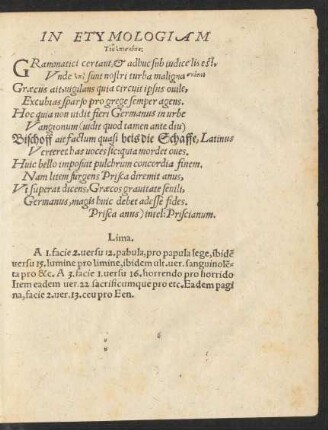 IN ETYMOLOGIAM
Τοῦ ἐπισκόπου
GRammatici certant, & adhuc sub iudice lis est.
Vnde sunt nostri turba maligna
Græcus ait, uigilans quia circuit ipsus ouile,
Excubias sparso pro grege semper agens.
Hoc quia non uidit fieri Germanus in urbe
Vangionum (uidit quod tamen ante diu)
Bischoff ait factum quasi beis die Schaffe, Latinus
Verteret has uoces si cupia mordet oues.
Huic bello imposuit pulchrum concordia finem.
Nam litem surgens Prisca diremit anus,
Vt superat dicens, Græcos grauitate senili,
Germanus, magis huic debet adesse fides.
Prisca anus) intel: Priscianum.
Lima.
A 1. facie 2. uersu 12. pabula, pro papula lege, ibidē
uersu 15. lumine pro limine, ibidem ult. uer. sanguinolē-
ta pro &c. A 3. facie 1. uersu 16. horrendo pro horrido
Item eadem uer. 22 sacrificumque pro etc. Eadem pagi
na, facie 2. uer. 13. ceu pro Een.